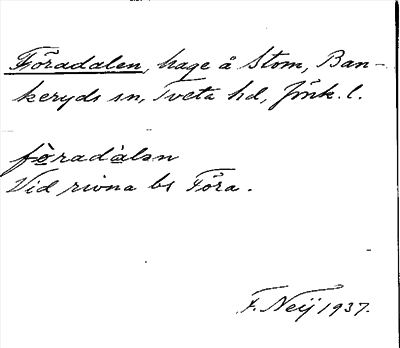 Föradalen, hage å Stom, Ban-
keryds sn, Tveta hd, Jönk. l.
fö̀radàlən
Vid rivna bs Föra.
F. Neij 1937.